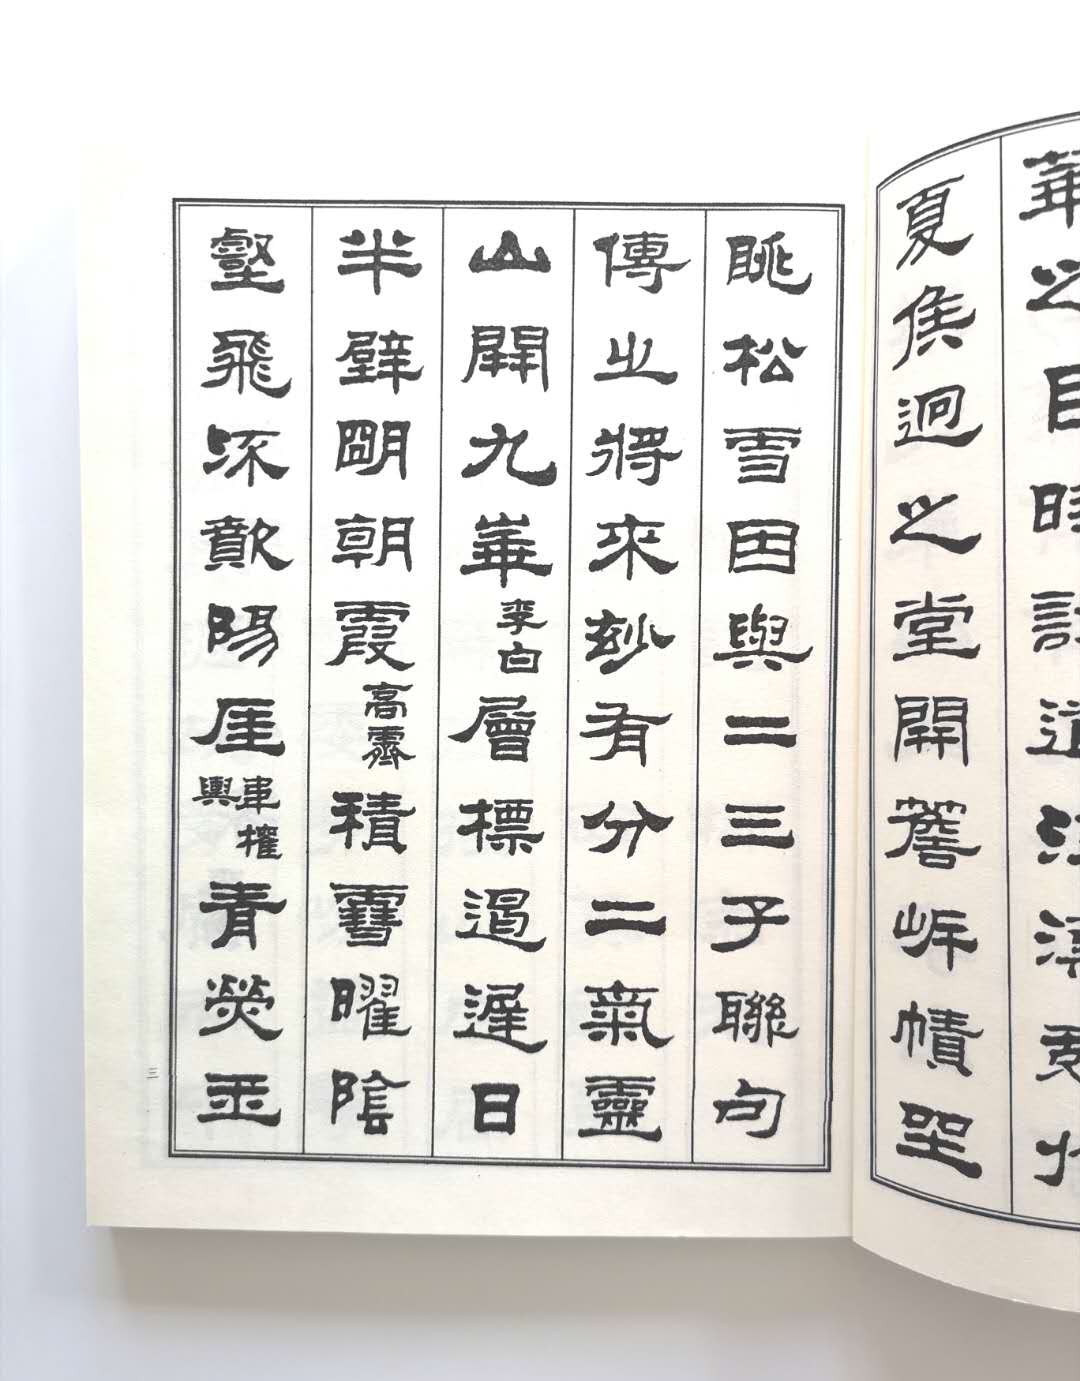 華之目時訪道江漢
夏侯迥之堂開簷岸幘坐
眺松雪因與二三子聯句
傳之將來玅有分二氣靈
山開九華李白層標遏遲日
半壁朙朝霞高霽積雪曜陰
壑飛流歕陽厓韋權輿青熒玉
三